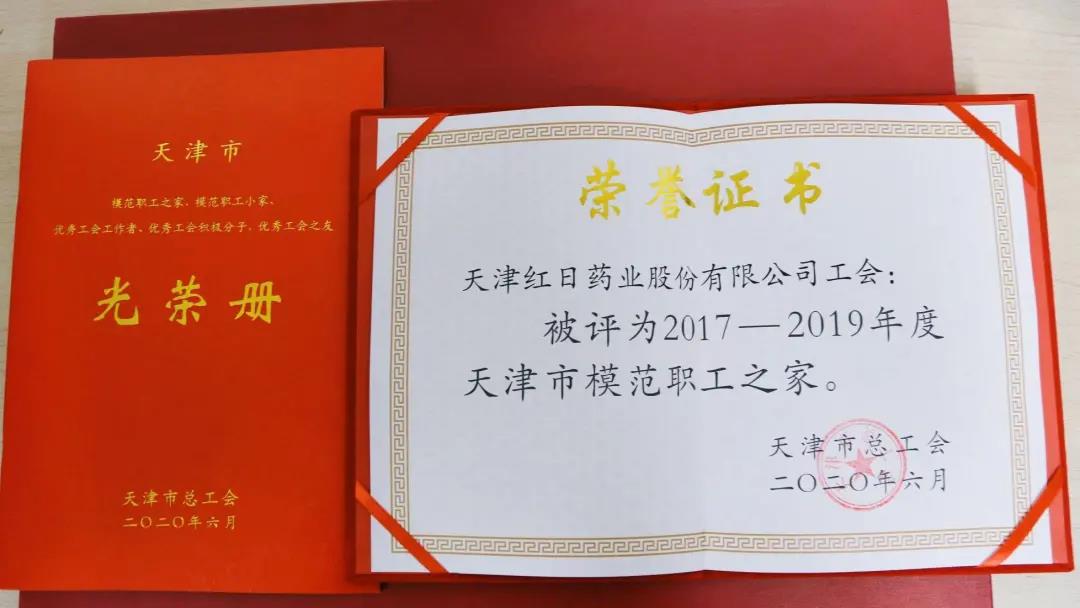 天津市
模范职工之家、模范职工小家、
优秀工会工作者、优秀工会积极分子、优秀工会之友
光荣册
天津市总工会
二〇二〇年六月
荣誉证书
天津红日药业股份有限公司工会：
被评为2017—2019年度
天津市模范职工之家。
天津市总工会
二〇二〇年六月